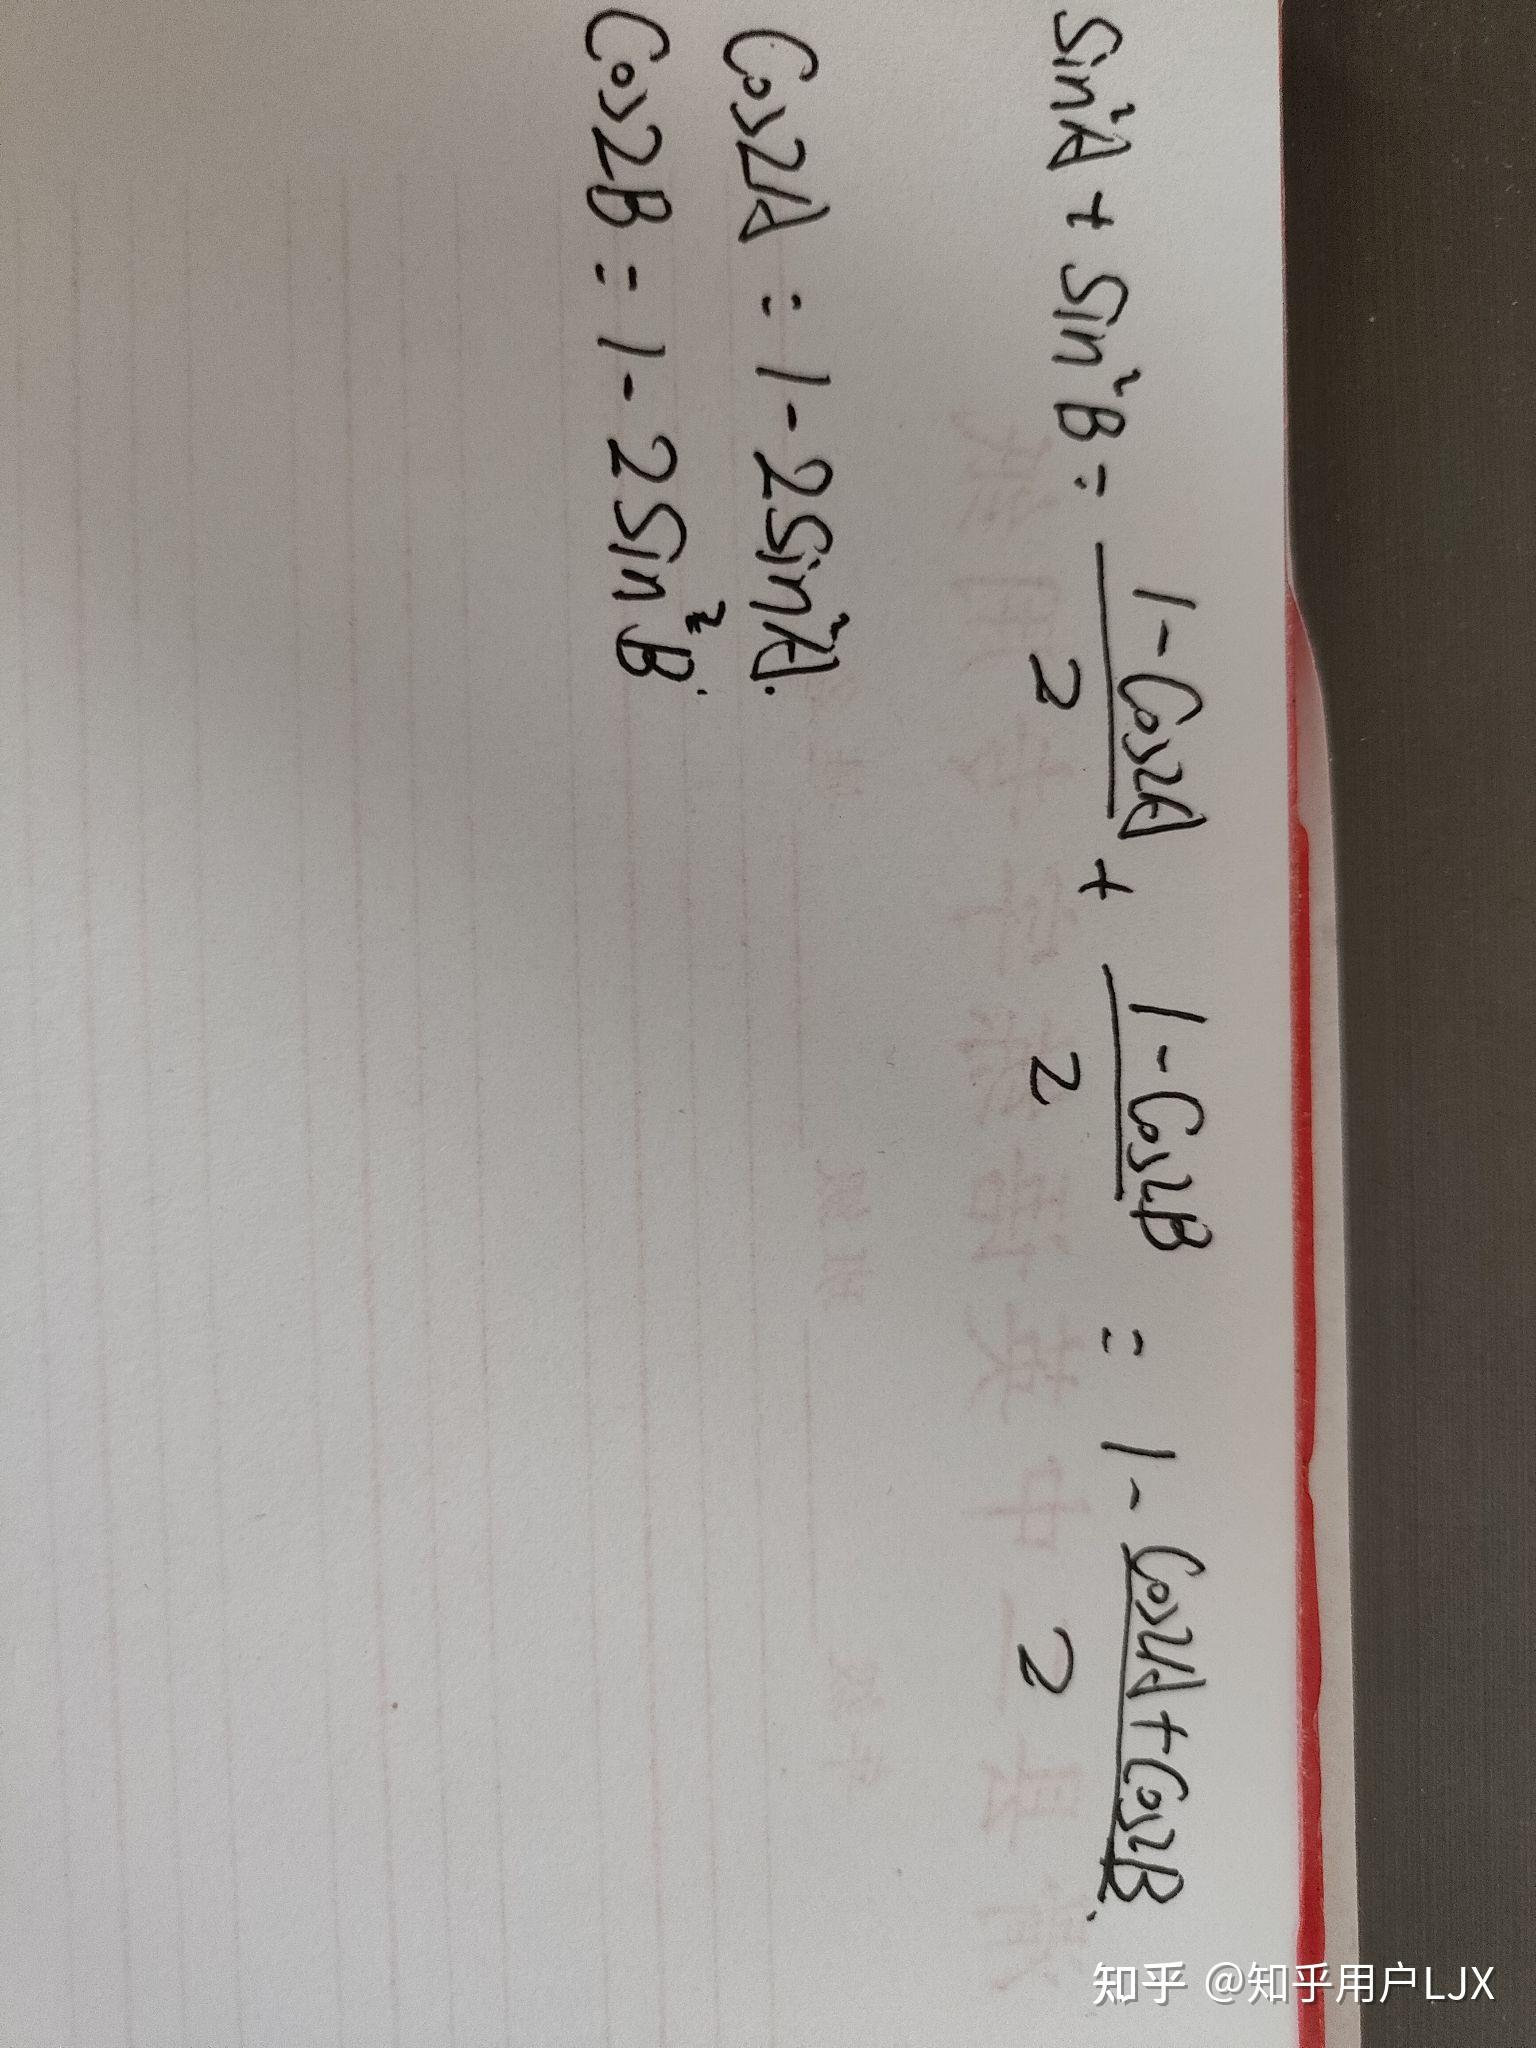 Sin²A + Sin²B = (1 - Cos2A)/2 + (1 - Cos2B)/2 = 1 - (Cos2A + Cos2B)/2.
Cos2A = 1 - 2Sin²A.
Cos2B = 1 - 2Sin²B.
知乎 @知乎用户LJX